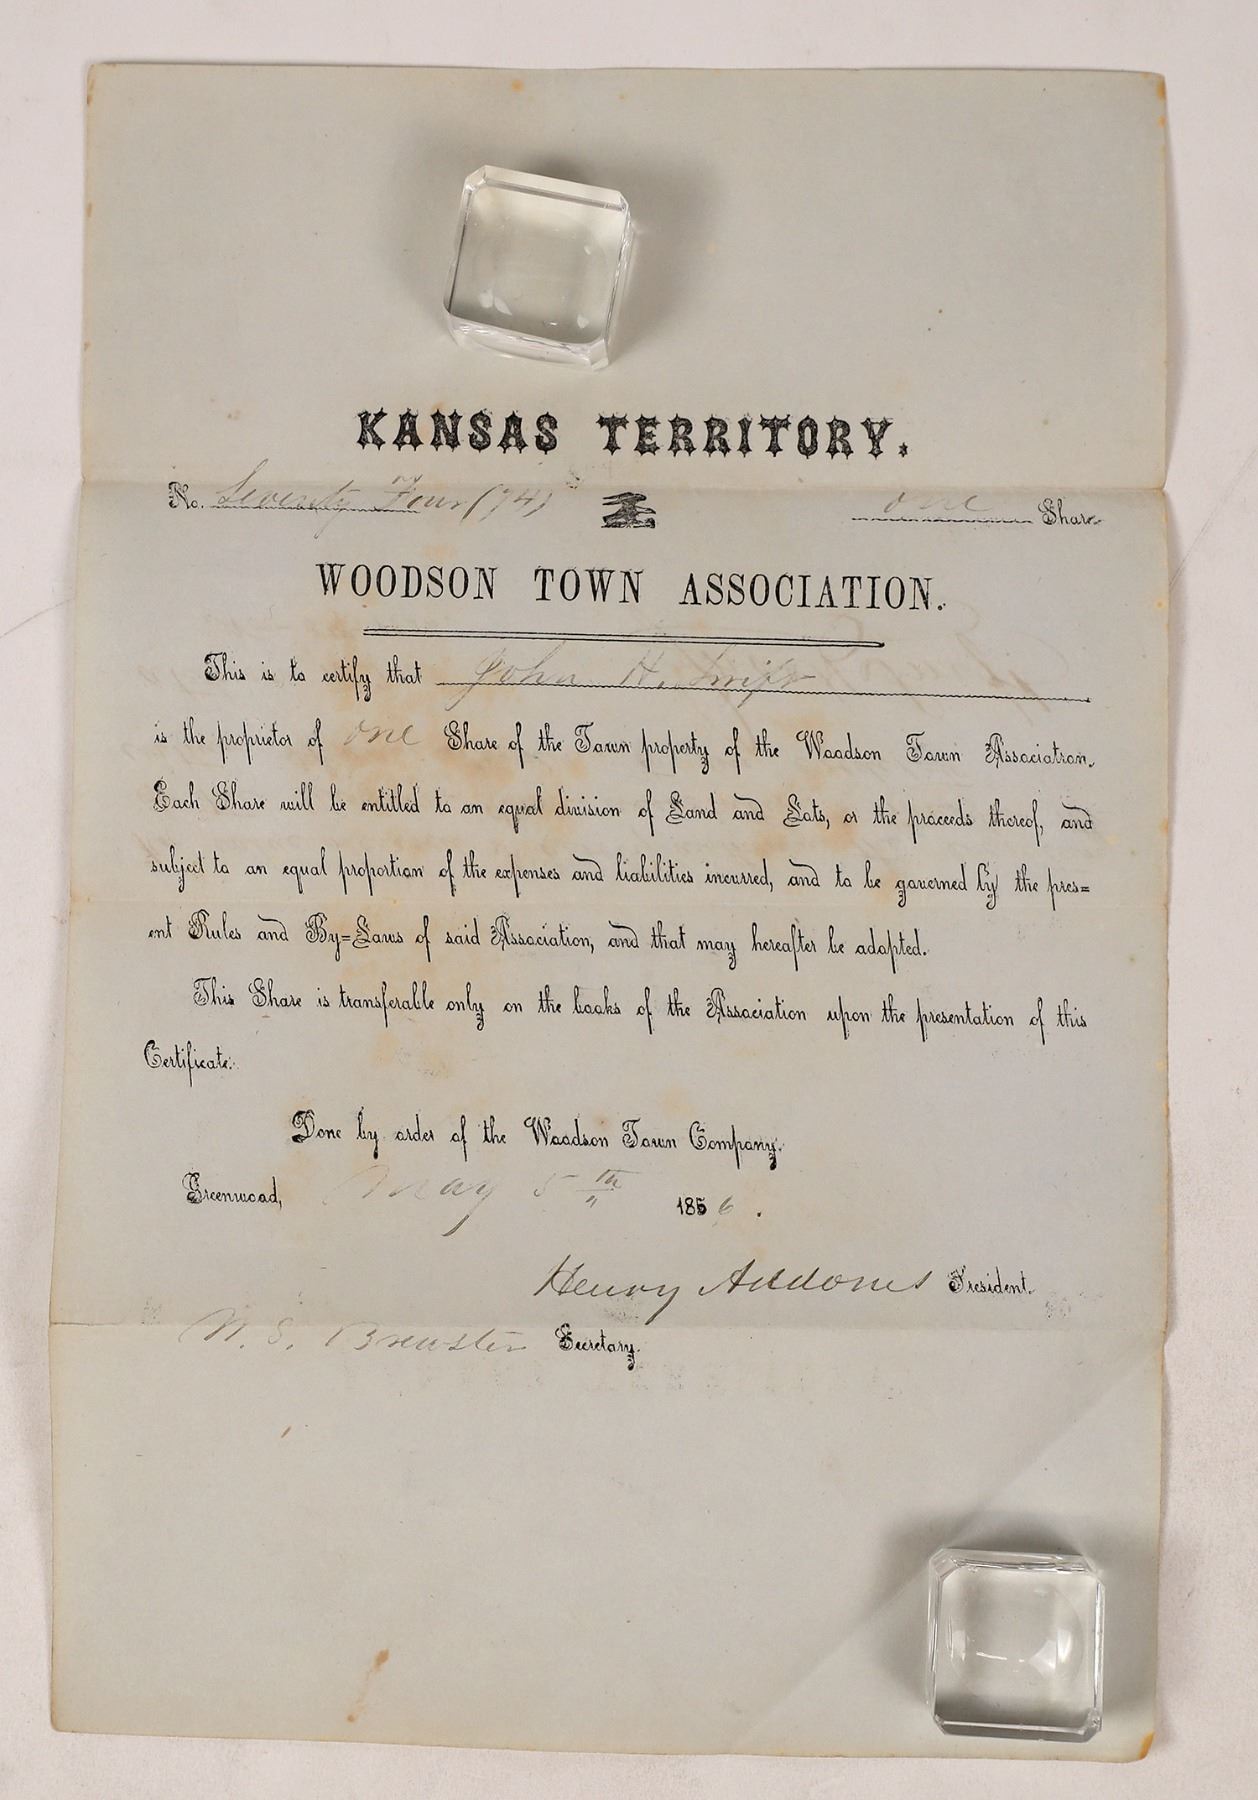 KANSAS TERRITORY.
No. Seventy Four (74) one Share
WOODSON TOWN ASSOCIATION.
This is to certify that John H. Swift
is the proprietor of one Share of the Town property of the Woodson Town Association.
Each Share will be entitled to an equal division of Land and Lots, or the proceeds thereof, and
subject to an equal proportion of the expenses and liabilities incurred, and to be governed by the pres=
ent Rules and By=Laws of said Association, and that may hereafter be adopted.
This Share is transferable only on the books of the Association upon the presentation of this
Certificate.
Done by order of the Woodson Town Company.
Greenwood, May 5th 1856.
Henry Addoms President.
N. S. Brewster Secretary.